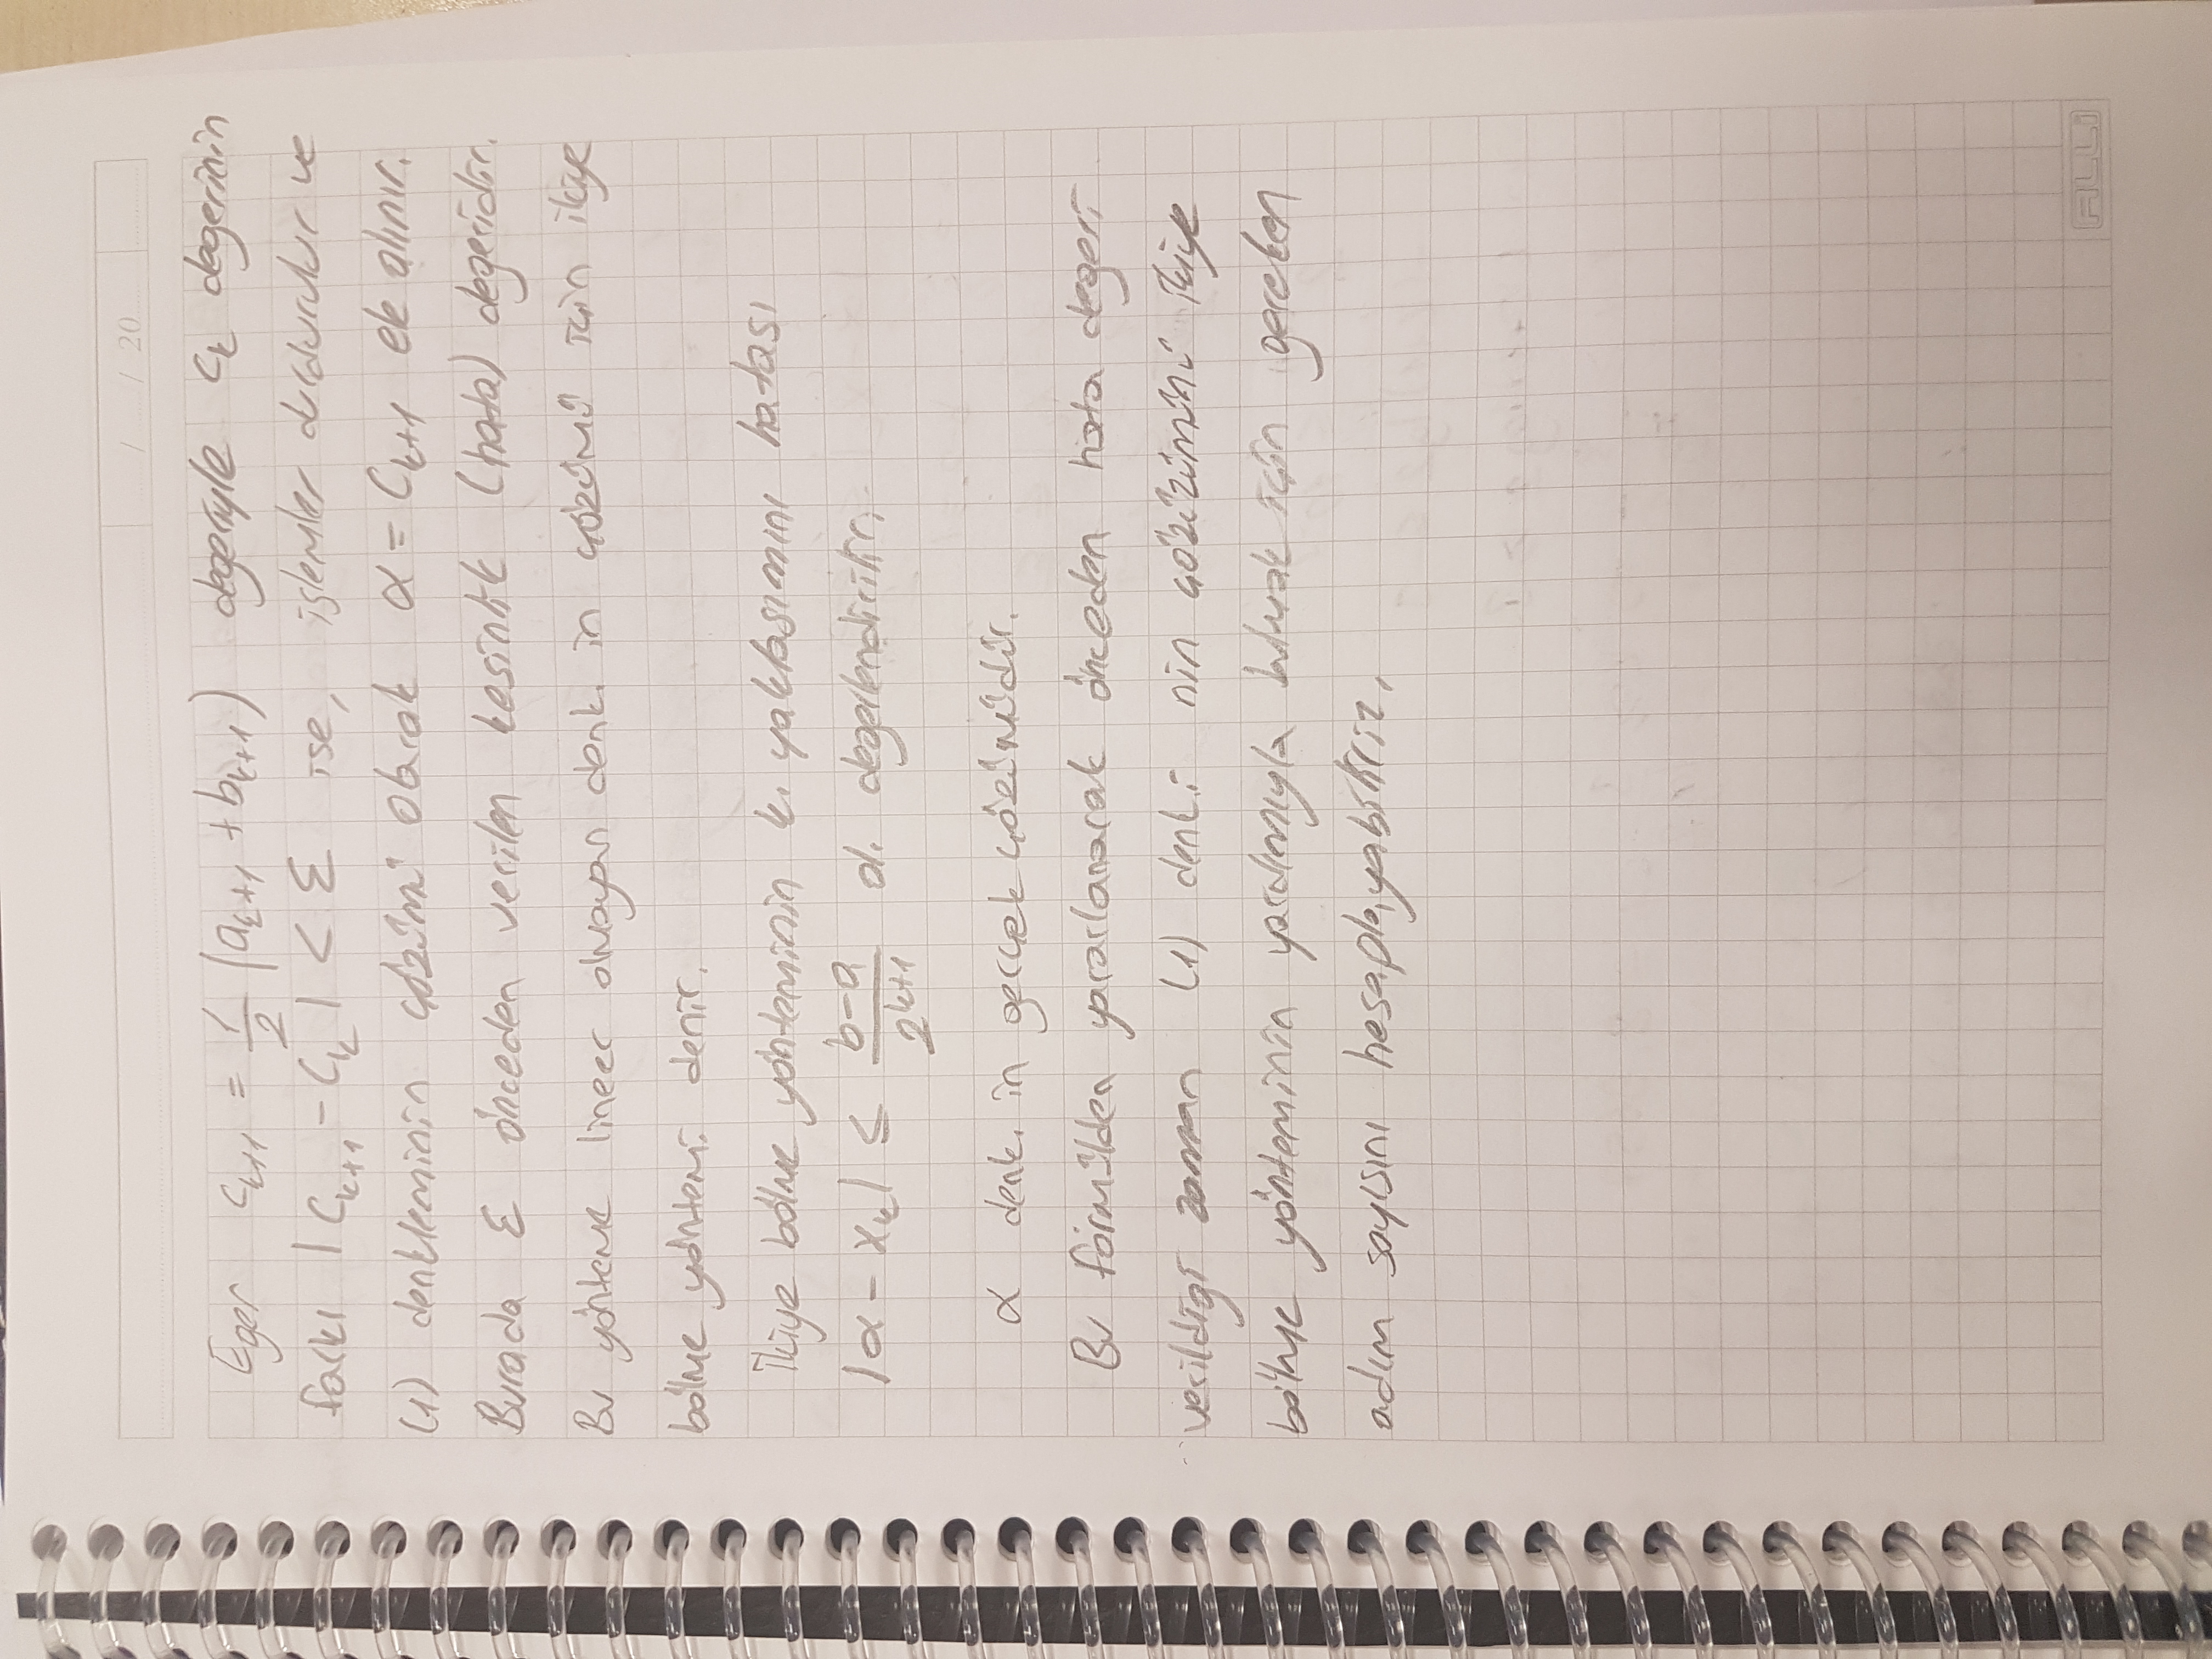 / / 20
Eger c_{k+1} = 1/2 (a_{k+1} + b_{k+1}) degeriyle c_k degerinin
farkı |c_{k+1} - c_k| < ε ise, işlemler durdurulur ve
(1) denkleminin çözümü olarak α = c_{k+1} ek alınır.
Burada ε önceden verilen kesinlik (hata) degeridir.
Bu yönteme lineer olmayan denk. in çözümü için ikiye
bölme yöntemi denir.
İkiye bölme yönteminin k. yaklaşımını hatası
|α - x_k| ≤ (b-a)/2^{k+1} ol. degerlendirilir.
α denk. in gerçek çözümüdür.
Bu formülden yararlanarak önceden hata degeri
verildigi zaman (1) denk. nin çözüzümünü ikiye
bölme yönteminin yardımıyla bulmak için gereken
adım sayısını hesaplayabiliriz.
ALLi